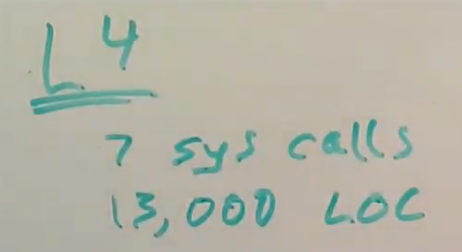 L4
7 sys calls
13,000 LOC